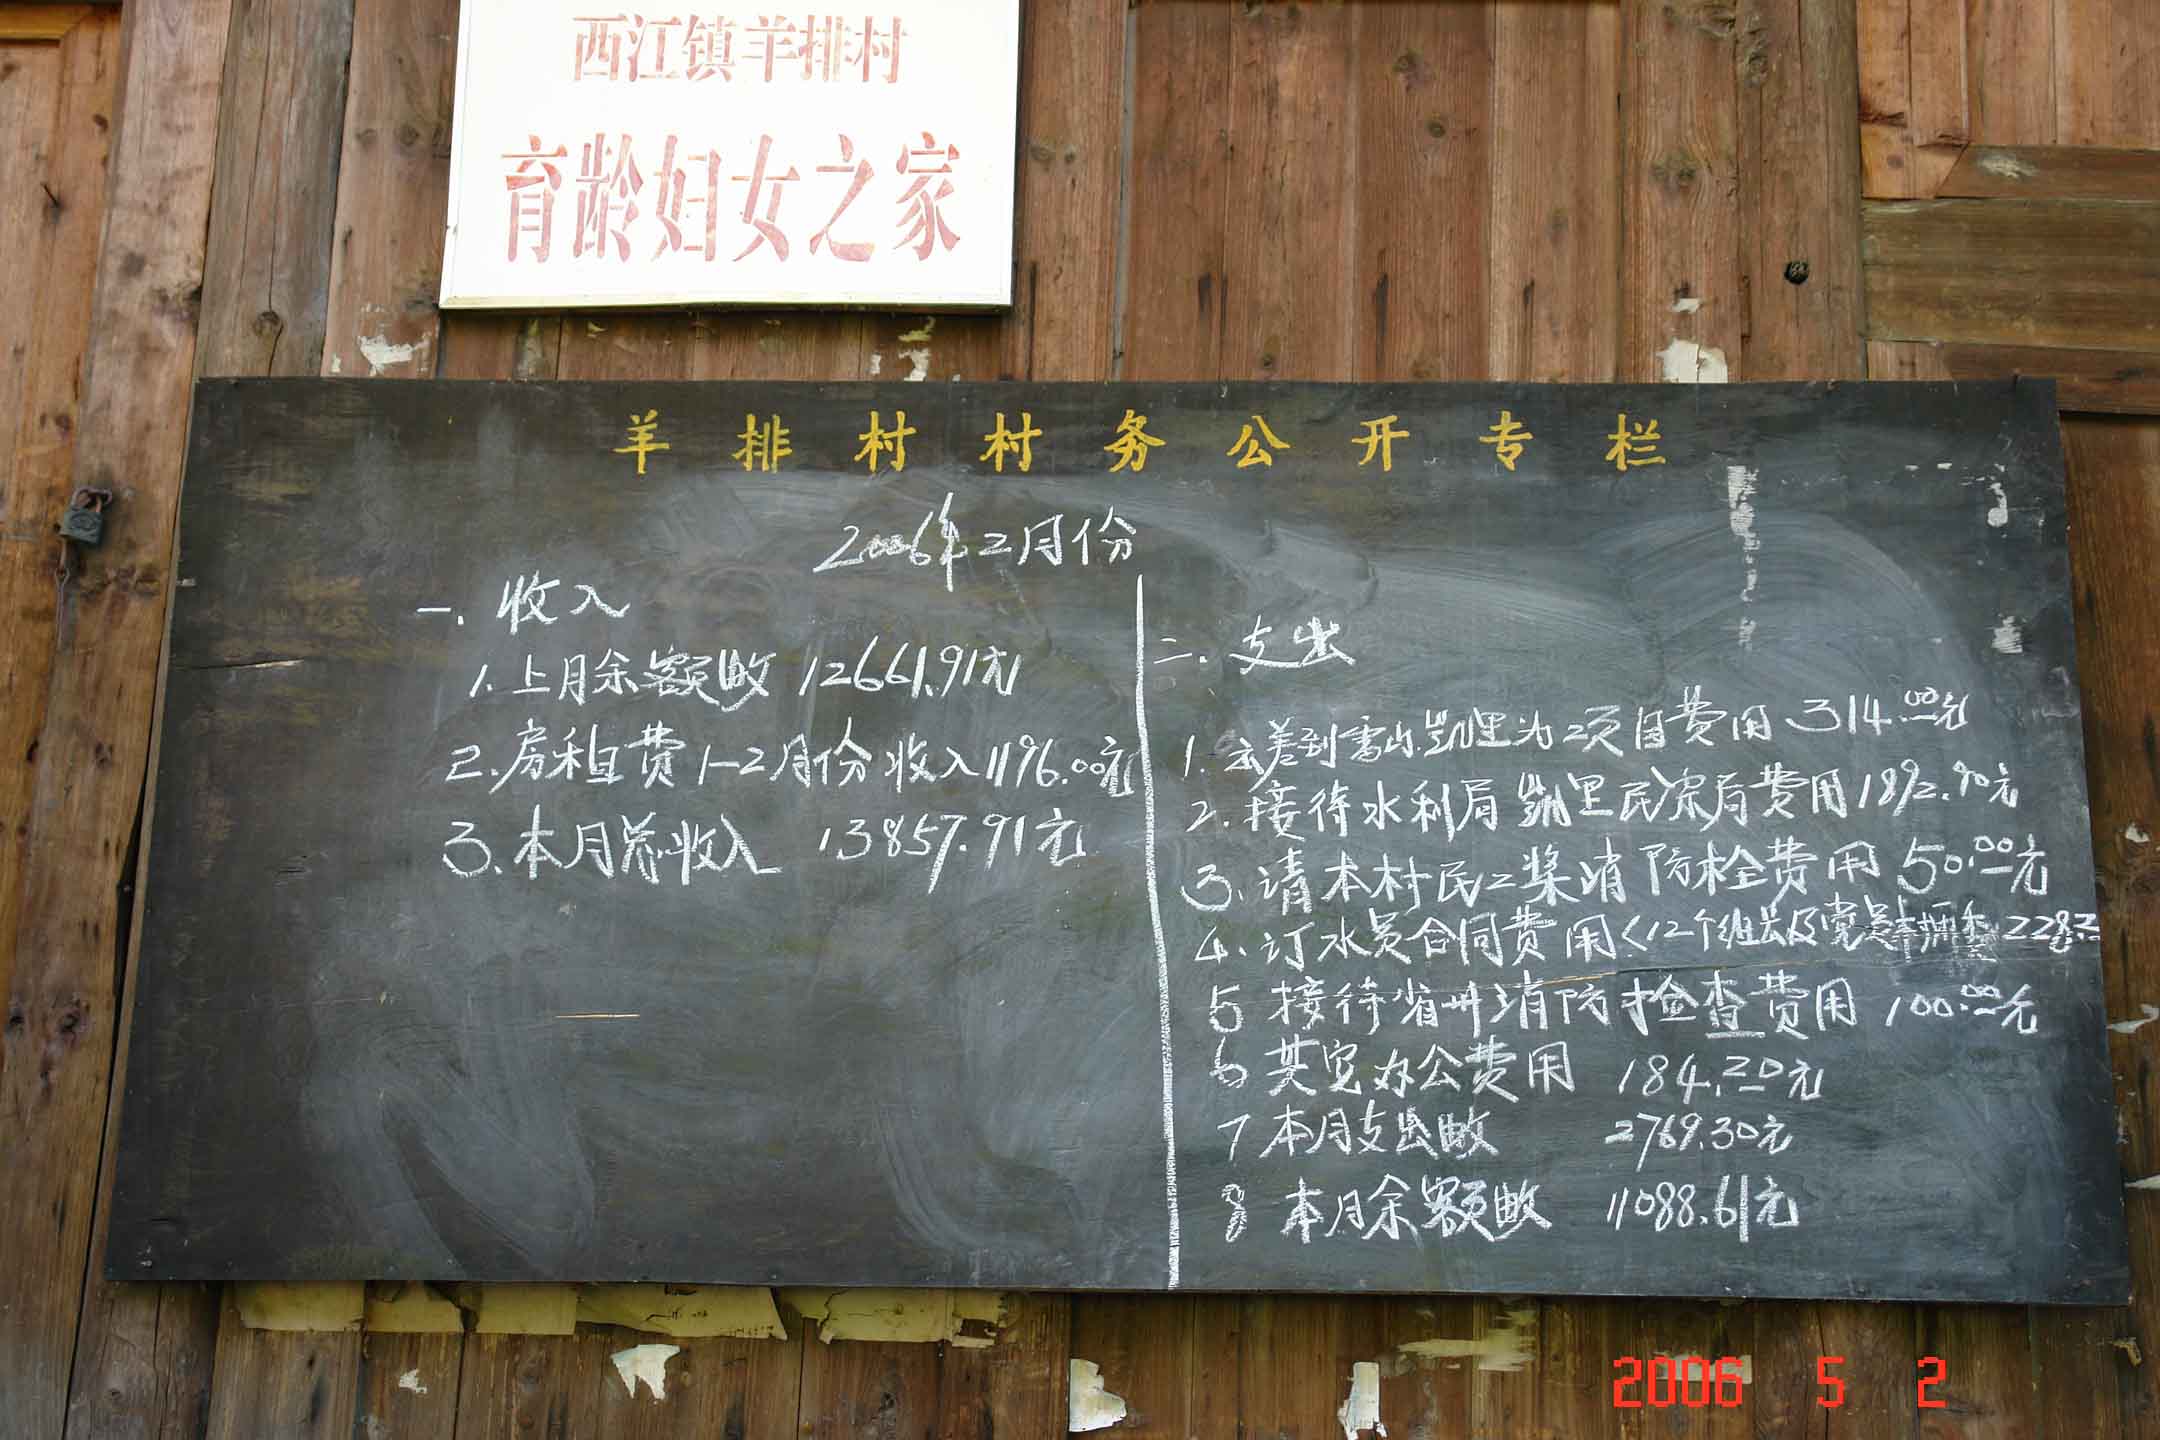 西江镇羊排村
育龄妇女之家
羊排村村务公开专栏
2006年二月份
一. 收入
1. 上月余额收 12661.91元
2. 房租费1-2月份收入1196.00元
3. 本月总收入 13857.91元
二. 支出
1. 差到雷山.凯里为项目费用 314.00元
2. 接待水利局 凯里民宗局费用1892.90元
3. 请本村民工装消防栓费用 50.00元
4. 订水员合同费用<12个组长及党员 228元
5 接待省州消防检查费用 100.00元
6 其它办公费用 184.20元
7 本月支出收 2769.30元
8 本月余额收 11088.61元
2006 5 2